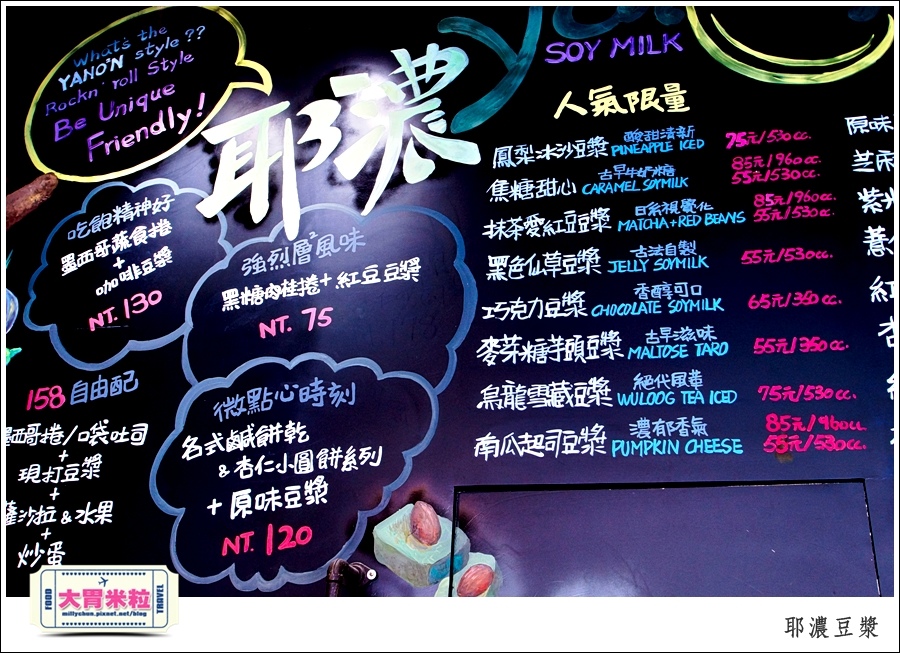 What's the
YANO'N style??
Rockn' roll Style
Be Unique
Friendly!
耶濃
吃飽精神好
墨西哥蔬食捲
+
咖啡豆漿
NT. 130
強烈層²風味
黑糖肉桂捲+紅豆豆漿
NT. 75
158 自由配
墨西哥捲/口袋吐司
+
現打豆漿
+
薩沙拉&水果
+
炒蛋
微點心時刻
各式鹹餅乾
&杏仁小圓餅系列
+原味豆漿
NT. 120
SOY MILK
人氣限量
鳳梨冰沙豆漿 酸甜清新 PINEAPPLE ICED 75元/530cc.
焦糖甜心 古早牛奶糖 CARAMEL SOYMILK 85元/960cc. 55元/530cc.
抹茶愛紅豆豆漿 日系視覺化 MATCHA+RED BEANS 85元/960cc. 55元/530cc.
黑色仙草豆漿 古法自製 JELLY SOYMILK 55元/530cc.
巧克力豆漿 香醇可口 CHOCOLATE SOYMILK 65元/350cc.
麥芽糖芋頭豆漿 古早滋味 MALTOSE TARO 55元/350cc.
烏龍雪藏豆漿 絕代風華 WULOOG TEA ICED 75元/530cc.
南瓜起司豆漿 濃郁香氣 PUMPKIN CHEESE 85元/960cc. 55元/530cc.
原味
紫米
紅
杏
FOOD 大胃米粒 TRAVEL
millychun.pixnet.net/blog
耶濃豆漿